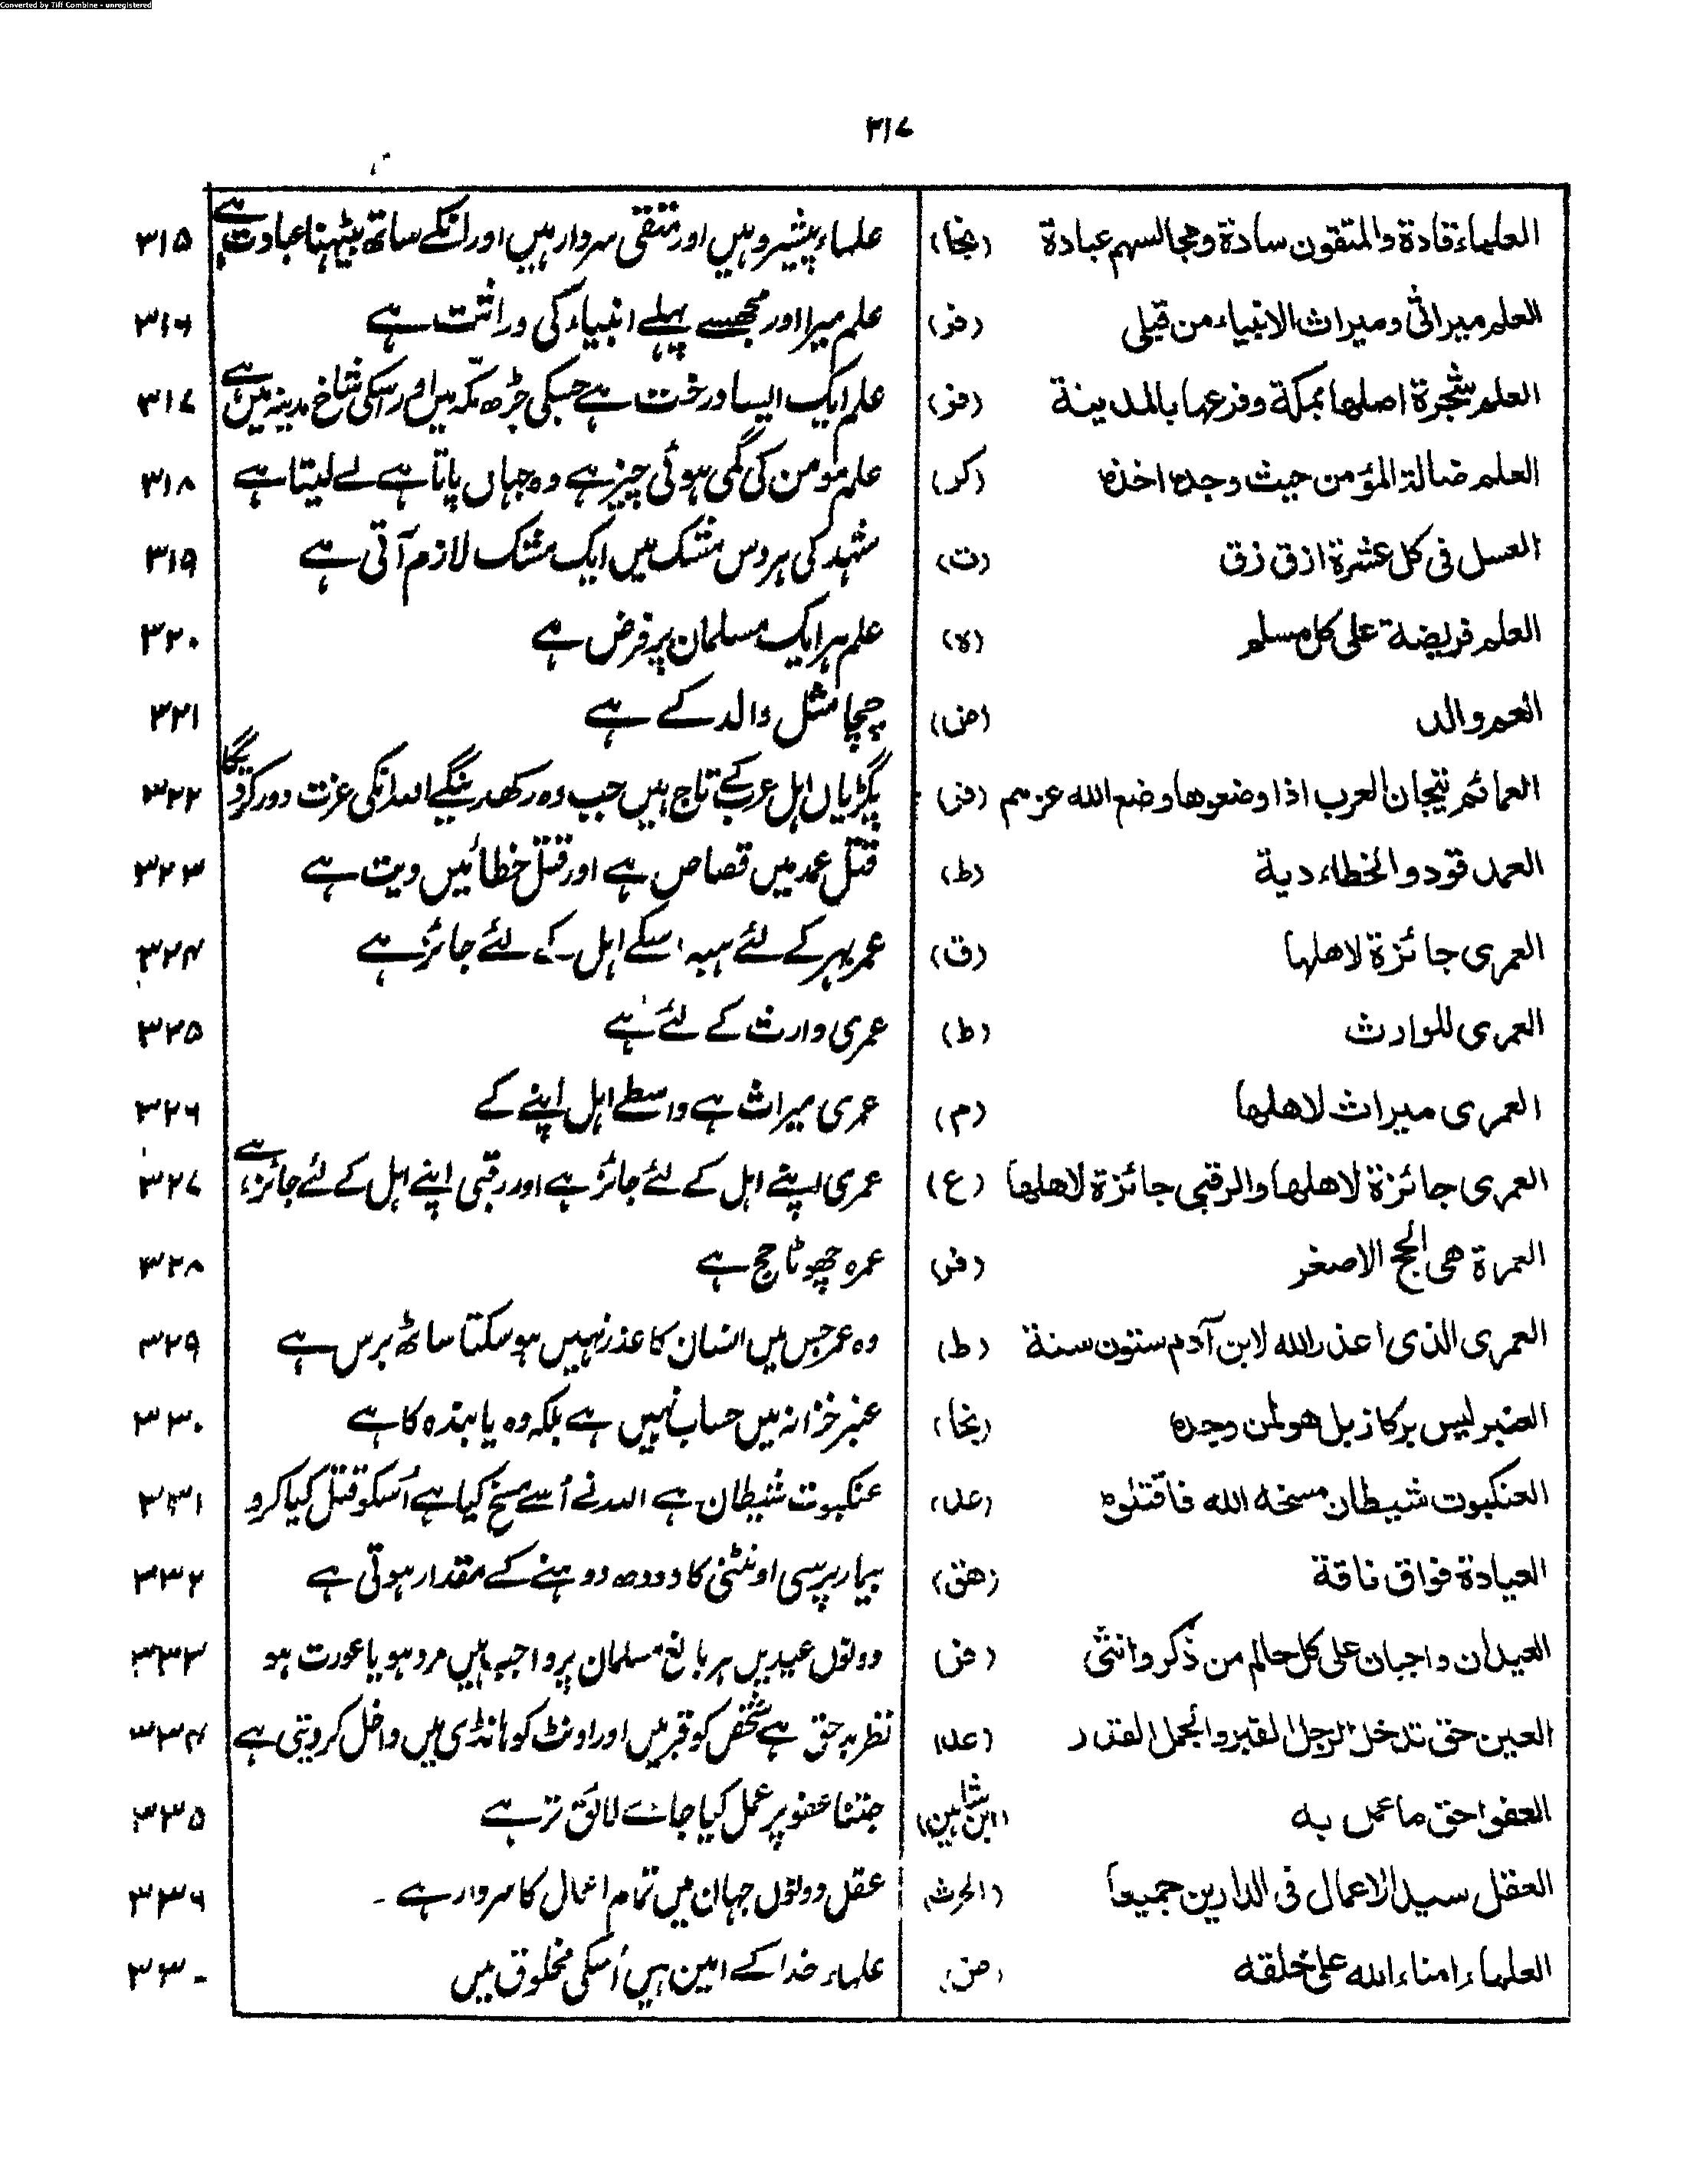 Converted by Tiff Combine - unregistered
٣١٧
العلماء قادة والمتقون سادة ومجالسهم عبادة (نجا) علماء پیشرو ہیں اور متقی سردار ہیں اور انکے ساتھ بیٹہنا عبادت ہے ٣١٥
العلم میراثی ومیراث الانبیاء من قبلی (فر) علم میرا اور مجھسے پہلے انبیاء کی وراثت ہے ٣١٦
العلم شجرة اصلها بمكة وفرعها بالمدینة (فر) علم ایک ایسا درخت ہے جسکی جڑھ مکہ میں اور اسکی شاخ مدینہ میں ہے ٣١٧
العلم ضالة المؤمن حیث وجدہ اخذہ (کر) علم مومن کی گمی ہوئی چیز ہے وہ جہاں پاتا ہے لے لیتا ہے ٣١٨
العسل فی کل عشرة ازق زق (ت) شہد کی ہر دس مشک میں ایک مشک لازم آتی ہے ٣١٩
العلم فریضة علی کل مسلم (ہ) علم ہر ایک مسلمان پر فرض ہے ٣٢٠
العم والد (ض) چچا مثل والد کے ہے ٣٢١
العمائم تیجان العرب اذا وضعوها وضع الله عزهم (فر) پگڑیاں اہل عرب کے تاج ہیں جب وہ رکھدینگے اللہ انکی عزت دور کردیگا ٣٢٢
العمد قود والخطاء دیة (ط) قتل عمد میں قصاص ہے اور قتل خطأ میں دیت ہے ٣٢٣
العمری جائزة لاهلها (ق) عمر بہر کے لئے ہبہ اسکے اہل کے لئے جائز ہے ٣٢٤
العمری للوارث (ط) عمری وارث کے لئے ہے ٣٢٥
العمری میراث لاهلها (م) عمری میراث ہے واسطے اہل اپنے کے ٣٢٦
العمری جائزة لاهلها والرقبی جائزة لاهلها (ع) عمری اپنے اہل کے لئے جائز ہے اور رقبی اپنے اہل کے لئے جائز ہے ٣٢٧
العمرة هی الحج الاصغر (فر) عمرہ چھوٹا حج ہے ٣٢٨
العمری الذی اعذر الله لابن آدم ستون سنة (ط) وہ عمر جس میں انسان کا عذر نہیں ہو سکتا ساٹھ برس ہے ٣٢٩
العنبر لیس برکاز بل هو لمن وجدہ (نجا) عنبر خزانہ میں حساب نہیں ہے بلکہ وہ یابندہ کا ہے ٣٣٠
العنکبوت شیطان مسخه الله فاقتلوہ (عد) عنکبوت شیطان ہے اللہ نے اُسے مسخ کیا ہے اُسکو قتل کیا کرو ٣٣١
العیادة فواق ناقة (هق) بیمار پرسی اونٹنی کا دودھ دوہنے کے مقدار ہوتی ہے ٣٣٢
العیدان واجبان علی کل حالم من ذکر وانثی (فر) دونوں عیدیں ہر بالغ مسلمان پر واجب ہیں مرد ہو یا عورت ہو ٣٣٣
العین حق تدخل الرجل القبر والجمل القدر (عد) نظر بد حق ہے شخص کو قبر میں اور اونٹ کو ہانڈی میں داخل کر دیتی ہے ٣٣٤
العفو احق ما عمل به (ابن شاہین) جتنا عفو پر عمل کیا جاے لائق تر ہے ٣٣٥
العقل سید الاعمال فی الدارین جمیعا (الحرث) عقل دونوں جہان میں تمام اعمال کا سردار ہے ۔ ٣٣٦
العلماء امناء الله علی خلقه (ض) علماء خدا کے امین ہیں اُسکی مخلوق میں ٣٣